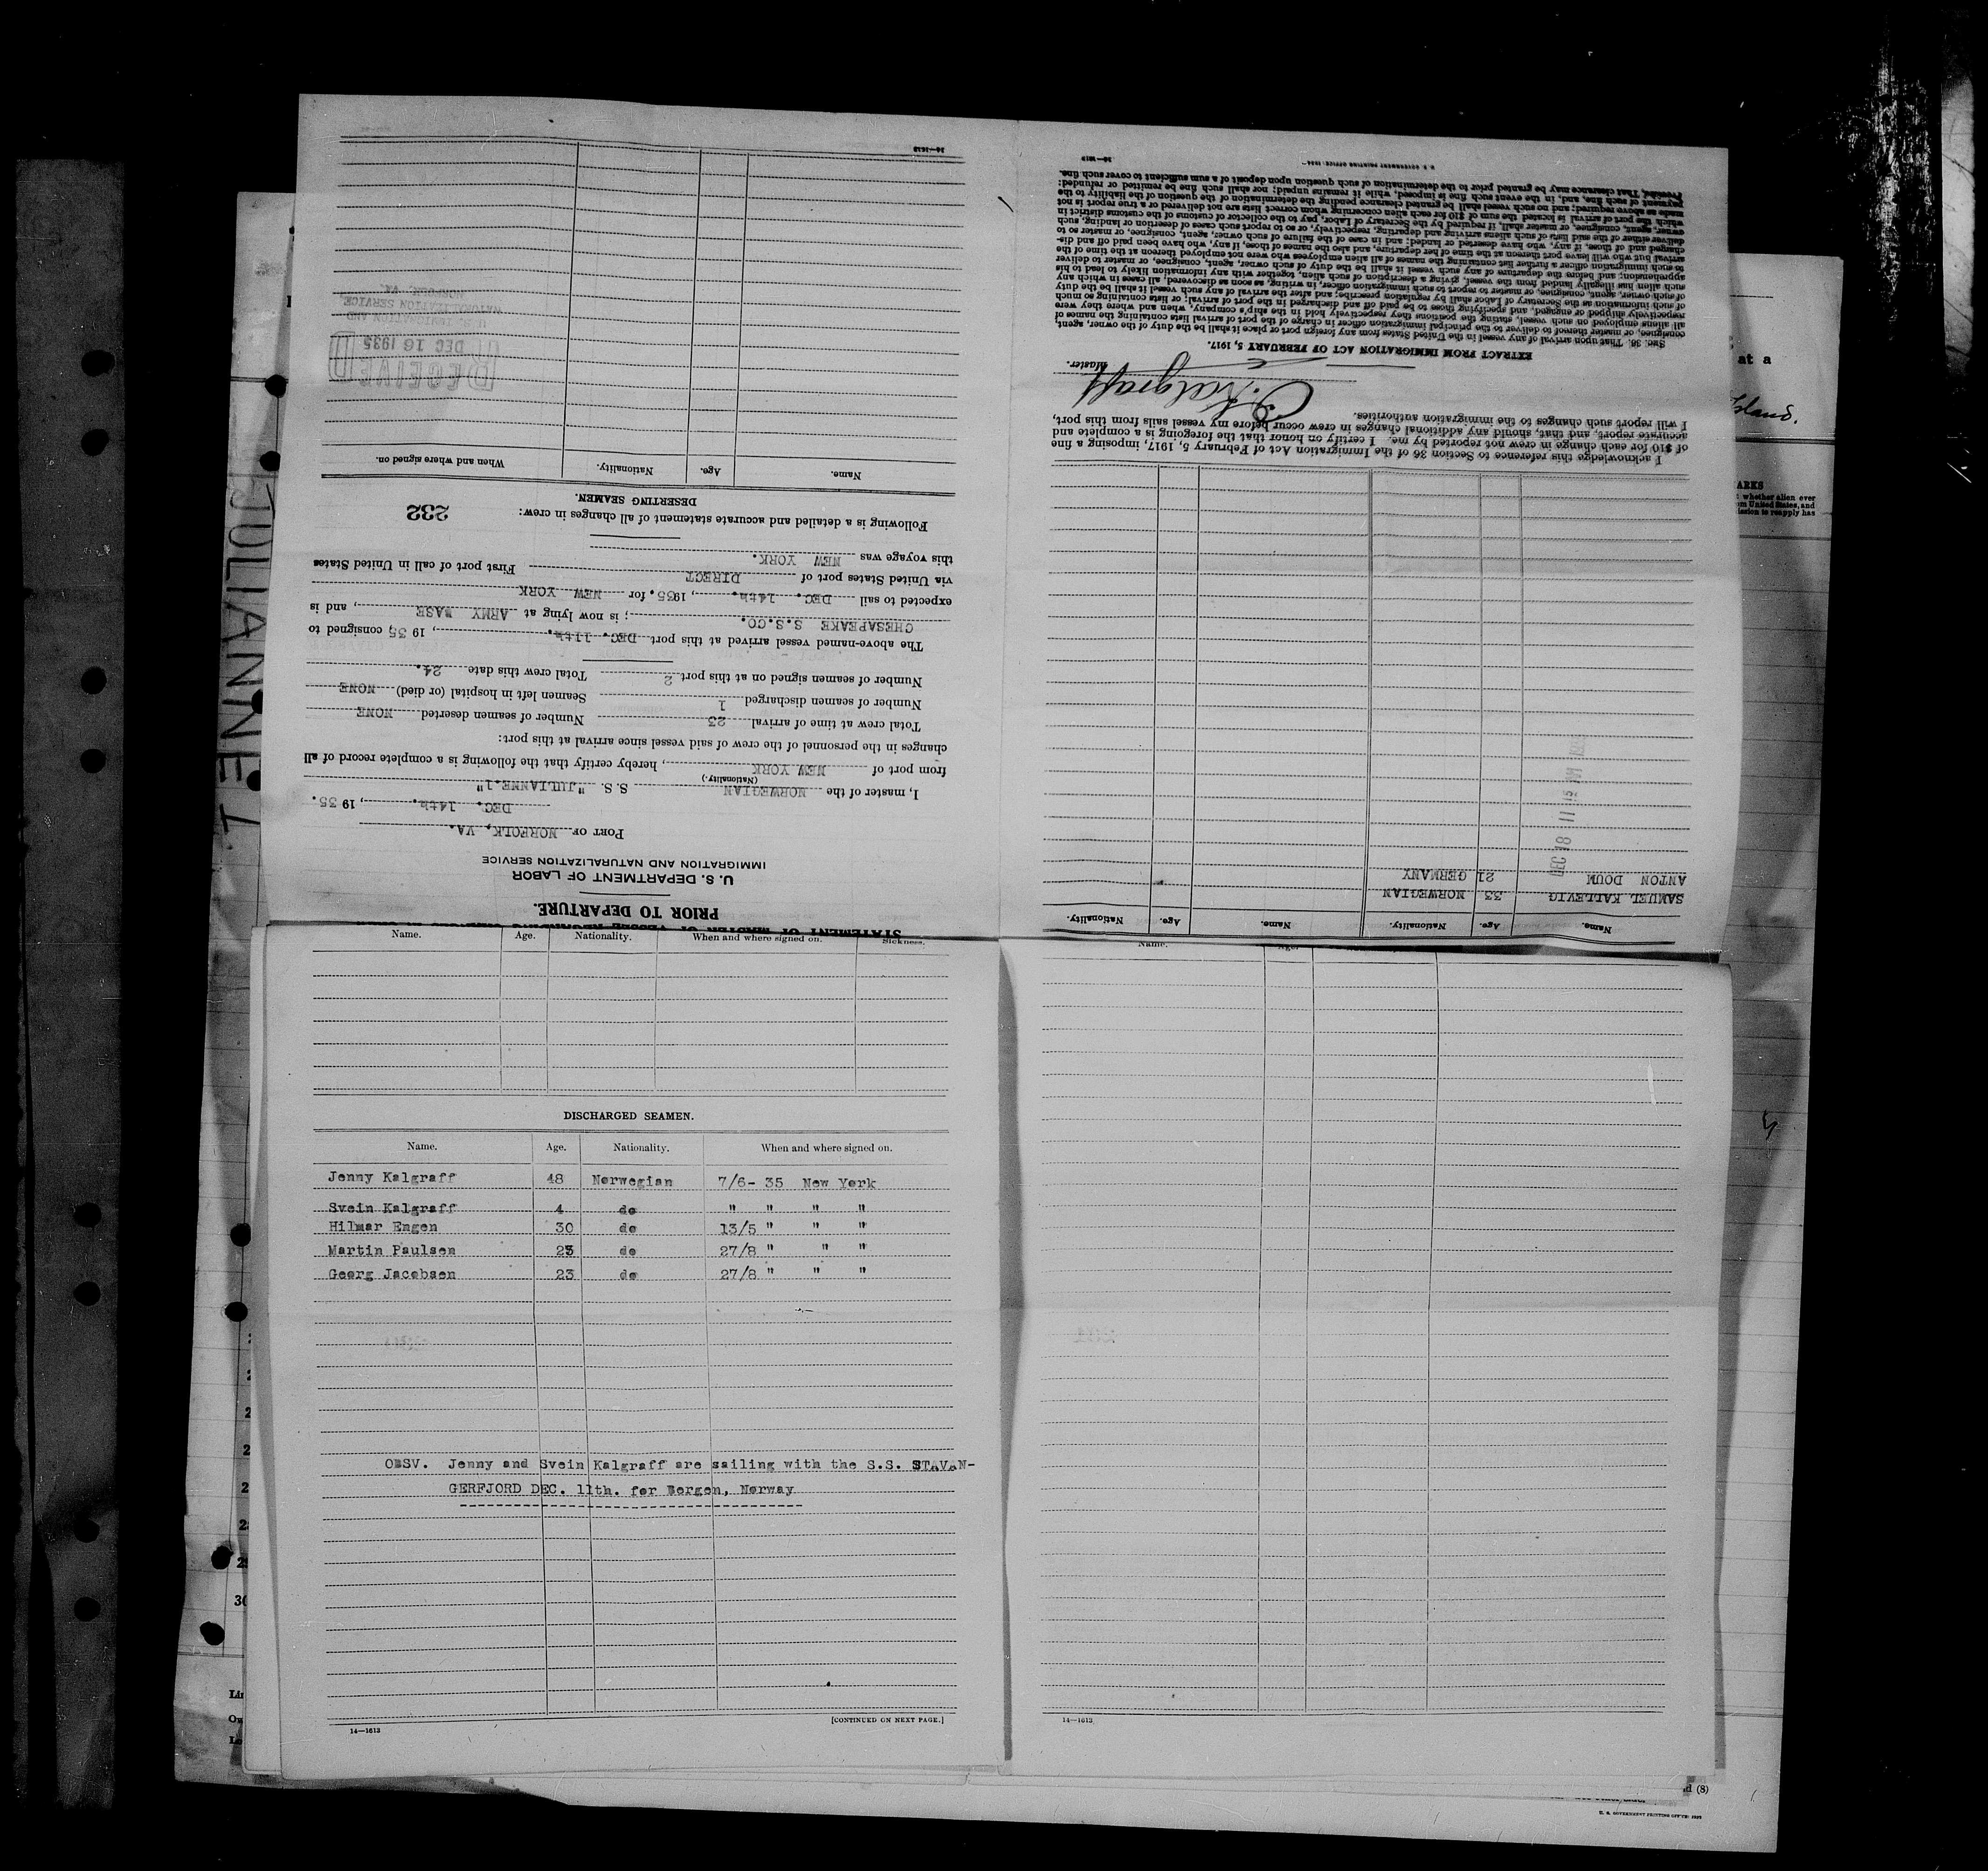 STATEMENT OF MASTER OF VESSEL REGARDING
PRIOR TO DEPARTURE.
U. S. DEPARTMENT OF LABOR
IMMIGRATION AND NATURALIZATION SERVICE
PORT OF NORFOLK, VA.
DEC. 14th., 1935.
I, master of the NORWEGIAN S. S. "JULIANNE.1"
(Nationality.)
from port of NEW YORK, hereby certify that the following is a complete record of all
changes in the personnel of the crew of said vessel since arrival at this port:
Total crew at time of arrival 23 Number of seamen deserted NONE
Number of seamen discharged 1 Seamen left in hospital (or died) NONE
Number of seamen signed on at this port 2 Total crew this date 24.
The above-named vessel arrived at this port DEC. 11th., 1935, consigned to
CHESAPEAKE S.S.CO.; is now lying at ARMY BASE, and is
expected to sail DEC. 14th., 1935. for NEW YORK
via United States port of DIRECT First port of call in United States
this voyage was NEW YORK.
Following is a detailed and accurate statement of all changes in crew:
232
DESERTING SEAMEN.
Name. Age. Nationality. When and where signed on.
RECEIVED
DEC 16 1935
U. S. IMMIGRATION AND
NATURALIZATION SERVICE
NORFOLK, VA.
14—1613
Name. Age. Nationality. Name. Age. Nationality.
SAMUEL KALLEVIG 33 NORWEGIAN
ANTON DOUM 21 GERMANY
DEC 18 11
I acknowledge this reference to Section 36 of the Immigration Act of February 5, 1917, imposing a fine
of $10 for each change in crew not reported by me. I certify on honor that the foregoing is a complete and
accurate report, and that, should any additional changes in crew occur before my vessel sails from this port,
I will report such changes to the immigration authorities.
Kalgraff
Master.
EXTRACT FROM IMMIGRATION ACT OF FEBRUARY 5, 1917.
SEC. 36. That upon arrival of any vessel in the United States from any foreign port or place it shall be the duty of the owner, agent,
consignee, or master thereof to deliver to the principal immigration officer in charge of the port of arrival lists containing the names of
all aliens employed on such vessel, stating the positions they respectively hold in the ship's company, when and where they were
respectively shipped or engaged, and specifying those to be paid off and discharged in the port of arrival; or lists containing so much
of such information as the Secretary of Labor shall by regulation prescribe; and after the arrival of any such vessel it shall be the duty
of such owner, agent, consignee, or master to report to such immigration officer, in writing, as soon as discovered, all cases in which any
such alien has illegally landed from the vessel, giving a description of such alien, together with any information likely to lead to his
apprehension; and before the departure of any such vessel it shall be the duty of such owner, agent, consignee, or master to deliver
to such immigration officer a further list containing the names of all alien employees who were not employed thereon at the time of the
arrival but who will leave port thereon at the time of her departure, and also the names of those, if any, who have been paid off and dis-
charged and of those, if any, who have deserted or landed; and in case of the failure of such owner, agent, consignee, or master so to
deliver either of the said lists of such aliens arriving and departing, respectively, or so to report such cases of desertion or landing, such
owner, agent, consignee, or master shall, if required by the Secretary of Labor, pay to the collector of customs of the customs district in
which the port of arrival is located the sum of $10 for each alien concerning whom correct lists are not delivered or a true report is not
made as above required; and no such vessel shall be granted clearance pending the determination of the question of the liability to the
payment of such fine, and, in the event such fine is imposed, while it remains unpaid; nor shall such fine be remitted or refunded:
Provided, That clearance may be granted prior to the determination of such question upon deposit of a sum sufficient to cover such fine.
U. S. GOVERNMENT PRINTING OFFICE: 1934
14—1613
JULIANNE 1.
at a
Island.
ARKS
whether alien ever
om United States, and
ission to reapply has
Name. Age. Nationality. When and where signed on. Sickness.
DISCHARGED SEAMEN.
Name. Age. Nationality. When and where signed on.
Jenny Kalgraff 48 Norwegian 7/6- 35 New York
Svein Kalgraff 4 do " " " "
Hilmar Engen 30 do 13/5 " " "
Martin Paulsen 23 do 27/8 " " "
Georg Jacobsen 23 do 27/8 " " "
OBSV. Jenny and Svein Kalgraff are sailing with the S.S. STAVAN-
GERFJORD DEC. 11th. for Bergen, Norway
14—1613 [CONTINUED ON NEXT PAGE.]
Name. Age.
14—1613
30
d (8)
U. S. GOVERNMENT PRINTING OFFICE